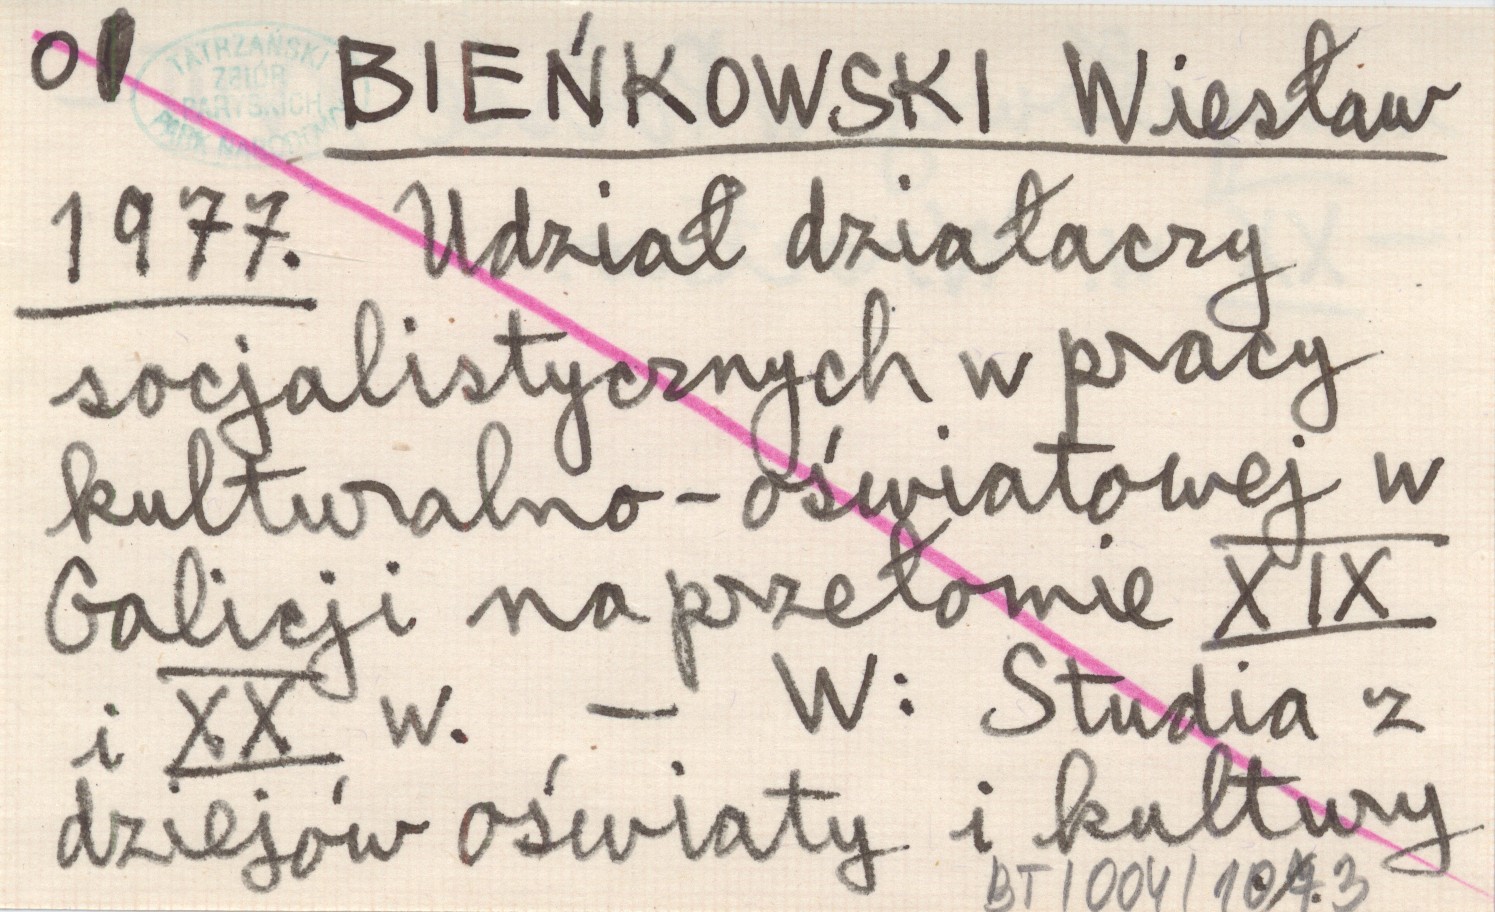 TATRZAŃSKI
ZBIÓR
BIEŃKOWSKI Wiesław
1977. Udział działaczy
socjalistycznych w pracy
kulturalno-oświatowej w
Galicji na przełomie XIX
i XX w. — W: Studia z
dziejów oświaty i kultury
BT/004/